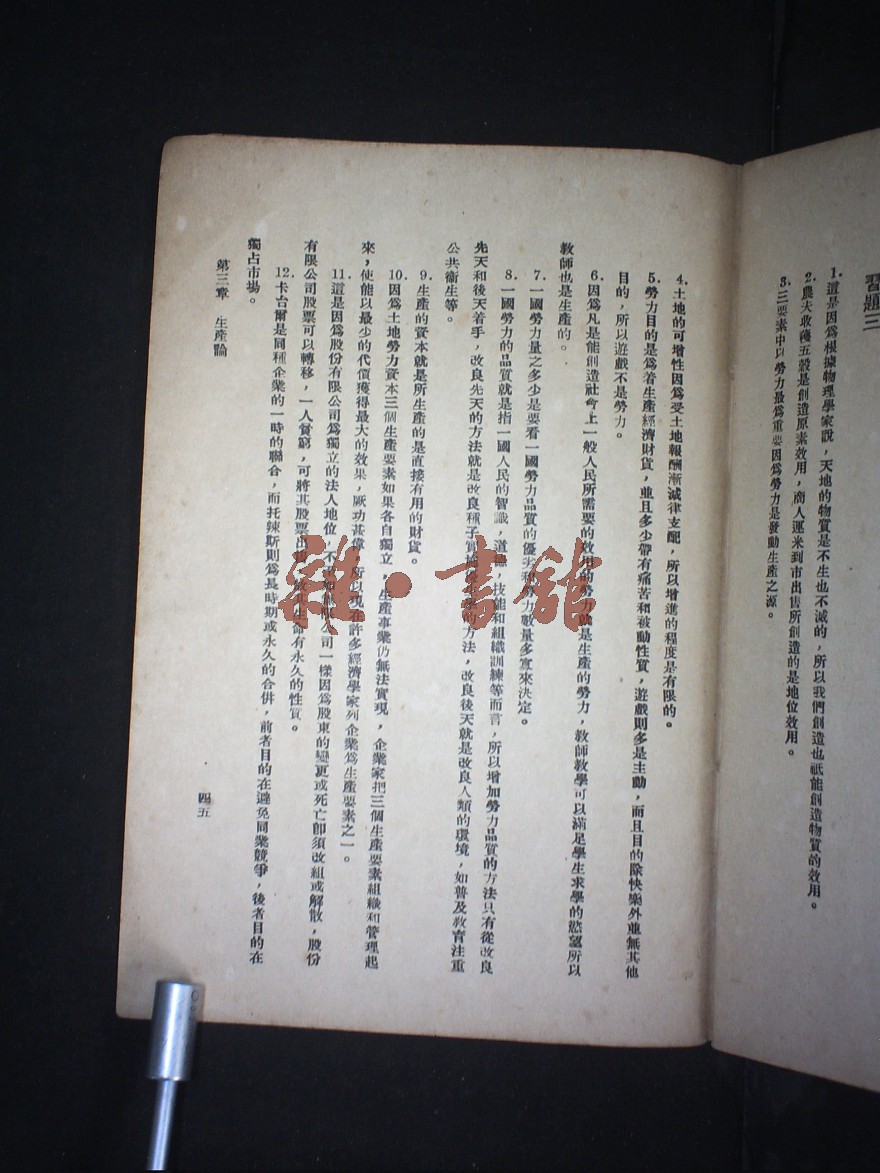 習題三
1. 這是因爲根據物理學家說，天地的物質是不生也不滅的，所以我們創造也祇能創造物質的效用。
2. 農夫收穫五穀是創造原素效用，商人運米到市出售所創造的是地位效用。
3. 三要素中以勞力最爲重要因爲勞力是發動生產之源。
4. 土地的可增性因爲受土地報酬漸減律支配，所以增進的程度是有限的。
5. 勞力目的是爲着生產經濟財貨，並且多少帶有痛苦和被動性質，遊戲則多是主動，而且目的除快樂外並無其他
目的，所以遊戲不是勞力。
6. 因爲凡是能創造社會上一般人民所需要的效用的勞力就是生產的勞力，教師教學可以滿足學生求學的慾望所以
教師也是生產的。
7. 一國勞力量之多少是要看一國勞力品質的優劣和勞力數量多寡來決定。
8. 一國勞力的品質就是指一國人民的智識，道德，技能和組織訓練等而言，所以增加勞力品質的方法只有從改良
先天和後天着手，改良先天的方法就是改良種子實施優生學的方法，改良後天就是改良人類的環境，如普及教育注重
公共衞生等。
9. 生產的資本就是所生產的是直接有用的財貨。
10. 因爲土地勞力資本三個生產要素如果各自獨立，生產事業仍無法實現，企業家把三個生產要素組織和管理起
來，使能以最少的代價獲得最大的效果，厥功甚偉，所以現在許多經濟學家列企業爲生產要素之一。
11. 這是因爲股份有限公司爲獨立的法人地位，不如無限公司一樣因爲股東的變更或死亡卽須改組或解散，股份
有限公司股票可以轉移，一人貧窮，可將其股票出，故其生命有永久的性質。
12. 卡台爾是同種企業的一時的聯合，而托辣斯則爲長時期或永久的合併，前者目的在避免同業競爭，後者目的在
獨占市場。
第三章　生產論
四五
雜・書館